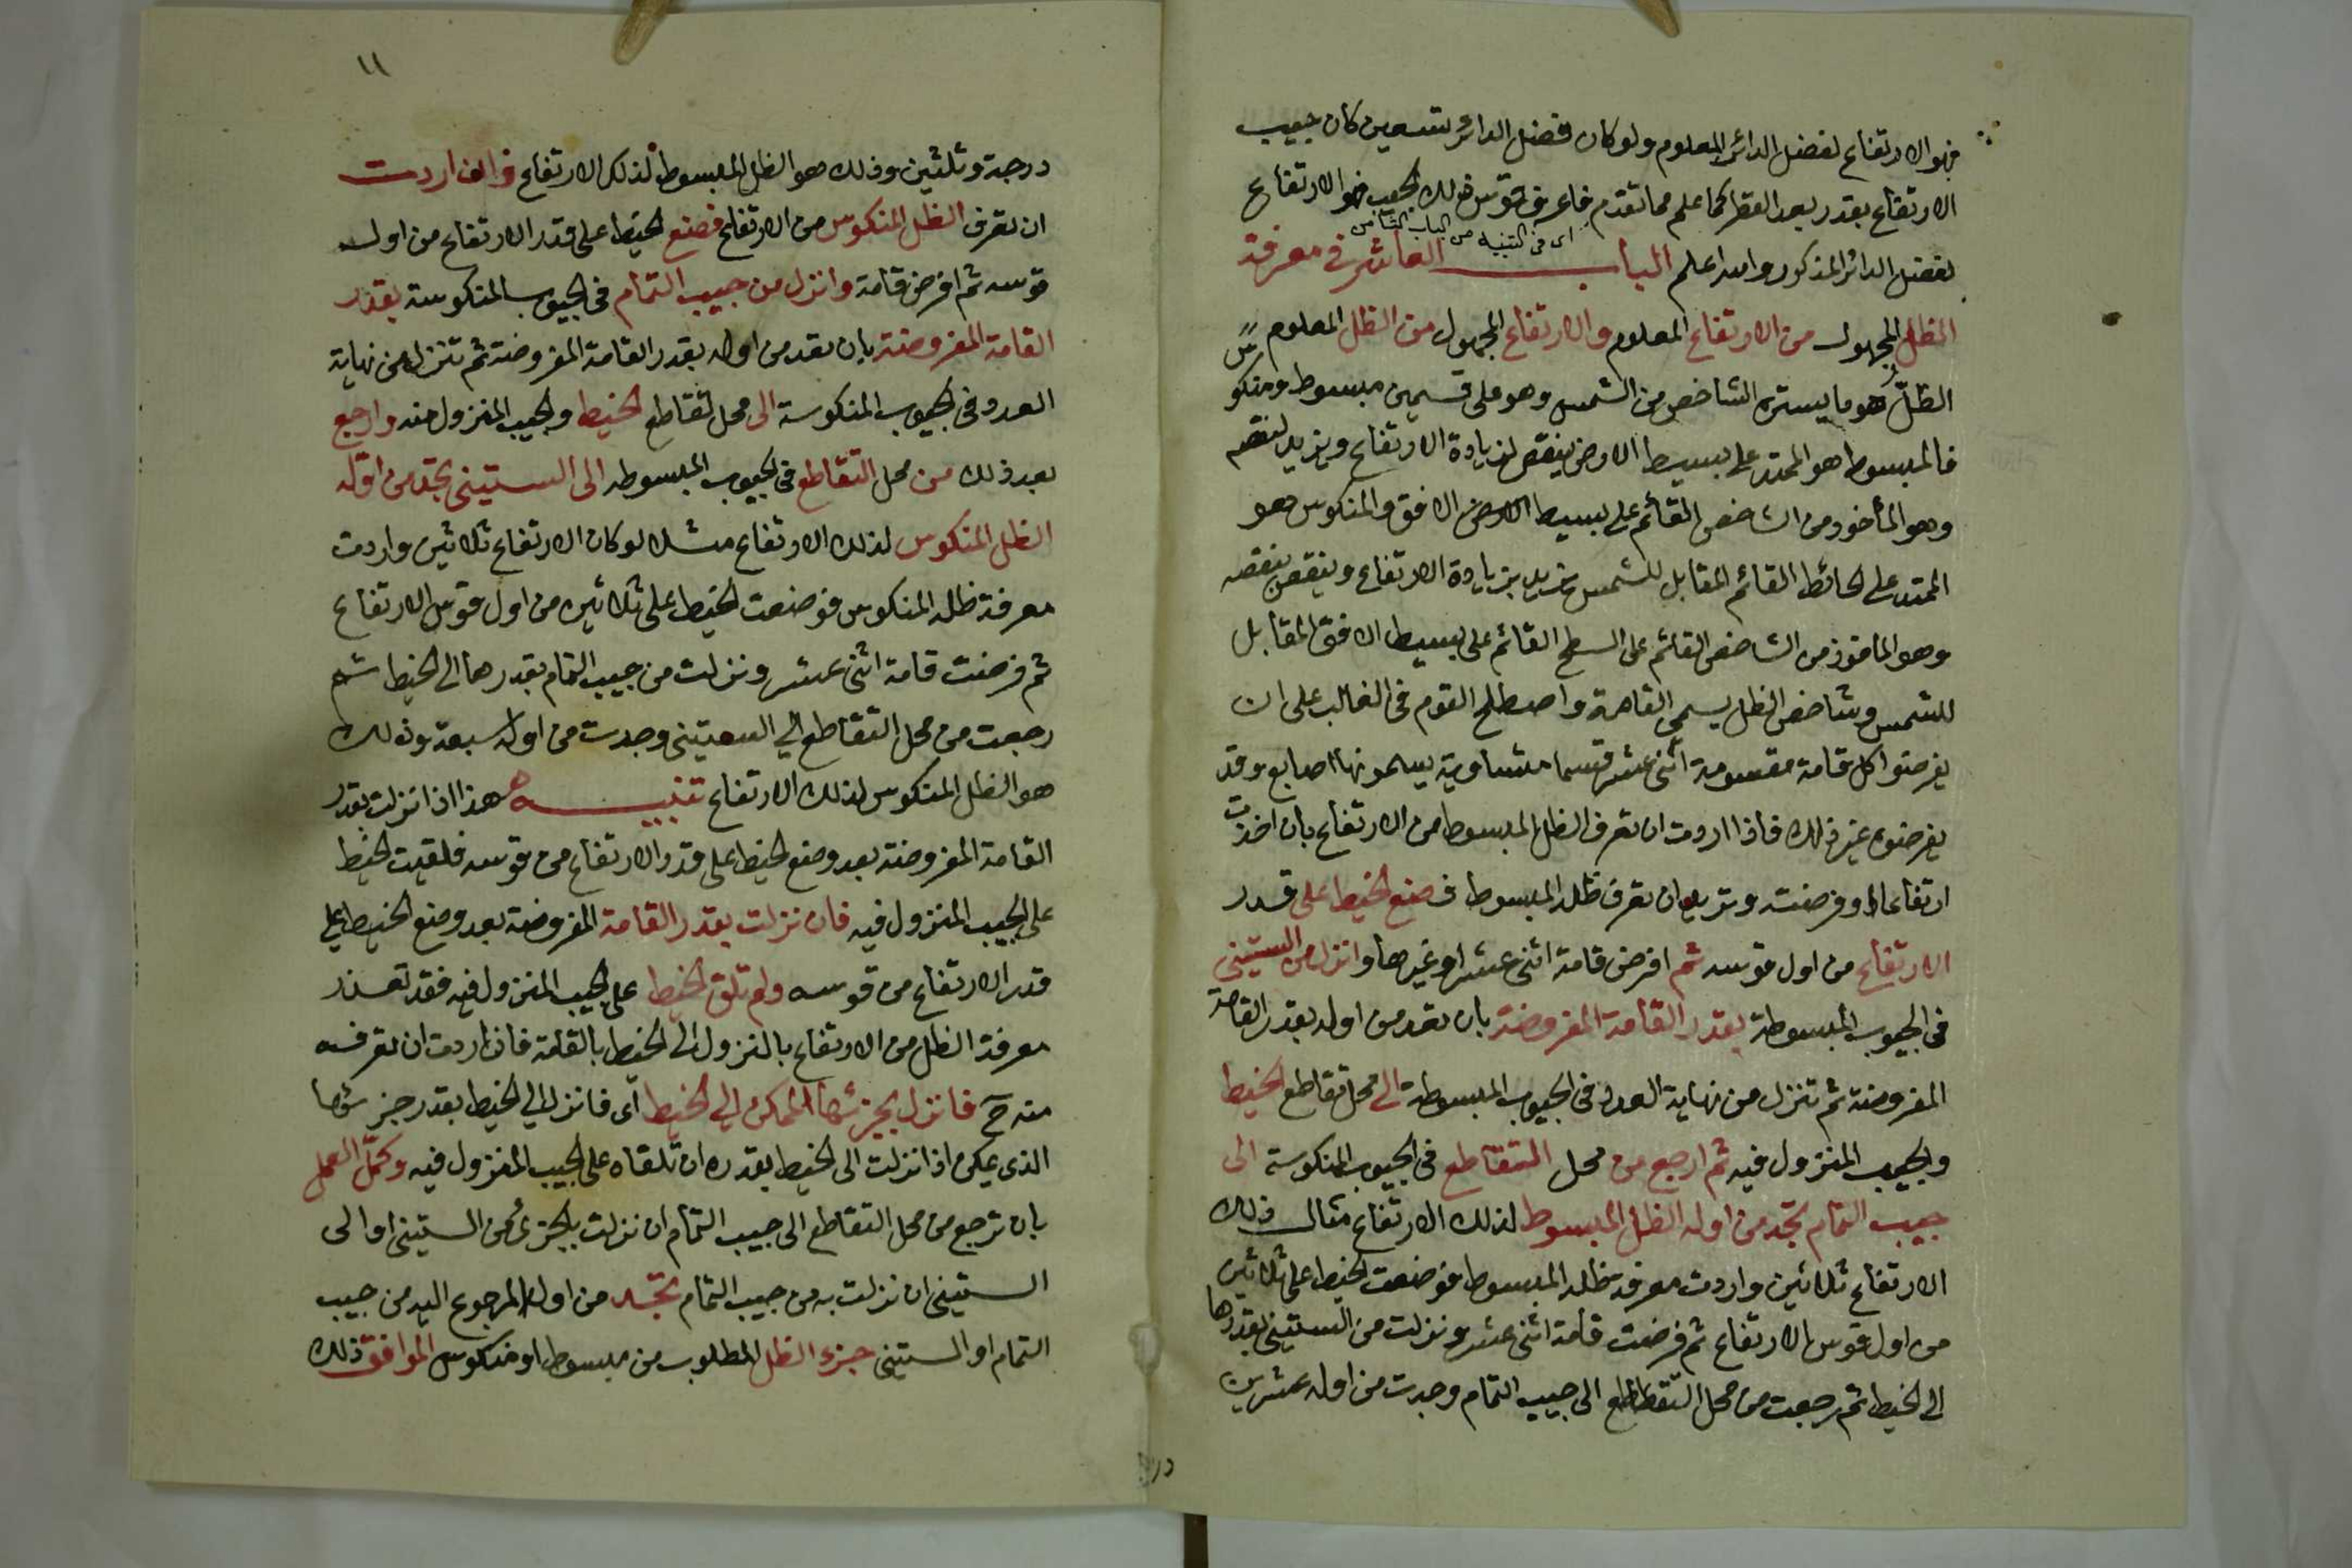 فهو الارتفاع لفضل الدائر المعلوم ولو كان فضل الدائر تسعين كان جيب
الارتفاع بقدر بعد القطر كما علم مما تقدم فاعرف قوس ذلك الجيب فهو الارتفاع
اى فى التنبيه من الباب الثامن
لفضل الدائر المذكور والله اعلم الباب العاشر فى معرفة
الظل المجهول من الارتفاع المعلوم والارتفاع المجهول من الظل المعلوم
الظل هو ما يستره الشاخص من الشمس وهو على قسمين مبسوط ومنكوس
فالمبسوط هو الممتد على بسيط الارض ينقص لزيادة الارتفاع ويزيد لنقصه
وهو المأخوذ من الشاخص القائم على بسيط الارض الافق والمنكوس هو
الممتد على الحائط القائم المقابل للشمس يزيد بزيادة الارتفاع وينقص بنقصه
وهو الماخوذ من الشاخص القائم على السطح القائم على بسيط الافق المقابل
للشمس وشاخص الظل يسمى القامة واصطلح القوم فى الغالب على ان
يفرضوا كل قامة مقسومة اثنى عشر قسما متساوية يسمونها اصابع وقد
يفرضون غير ذلك فاذا اردت ان تعرف الظل المبسوط من الارتفاع بان اخذت
ارتفاعا او فرضته وتريد ان تعرف ظله المبسوط فضع الخيط على قدر
الارتفاع من اول قوسه ثم افرض قامة اثنى عشر او غيرها وانزل من الستينى
فى الجيوب المبسوطة بقدر القامة المفروضة بان تعد من اوله بقدر القامة
المفروضة ثم تنزل من نهاية العدد فى الجيوب المبسوطة الى محل تقاطع الخيط
والجيب المنزول فيه ثم ارجع من محل التقاطع فى الجيوب المنكوسة الى
جيب التمام تجد من اوله الظل المبسوط لذلك الارتفاع مثال ذلك
الارتفاع ثلاثين واردت معرفة ظله المبسوط فوضعت الخيط على ثلاثين
من اول قوس الارتفاع ثم فرضت قامة اثنى عشر ونزلت من الستينى بقدرها
الى الخيط ثم رجعت من محل التقاطع الى جيب التمام وجدت من اوله عشرين
١١
درجة وثلثين وذلك هو الظل المبسوط لذلك الارتفاع واان اردت
ان تعرف الظل المنكوس من الارتفاع فضع الخيط على قدر الارتفاع من اول
قوسه ثم افرض قامة وانزل من جيب التمام فى الجيوب المنكوسة بقدر
القامة المفروضة بان تعد من اوله بقدر القامة المفروضة ثم تنزل من نهاية
العدد فى الجيوب المنكوسة الى محل تقاطع الخيط والجيب المنزول منه وارجع
بعد ذلك من محل التقاطع فى الجيوب المبسوطه الى الستينى تجد من اوله
الظل المنكوس لذلك الارتفاع مثلا لو كان الارتفاع ثلاثين واردت
معرفة ظله المنكوس فوضعت الخيط على ثلاثين من اول قوس الارتفاع
ثم فرضت قامة اثنى عشر ونزلت من جيب التمام بقدرها الى الخيط ثم
رجعت من محل التقاطع الى الستينى وجدت من اوله سبعة وذلك
هو الظل المنكوس لذلك الارتفاع تنبيه هذا اذا نزلت بقدر
القامة المفروضة بعد وضع الخيط على قدر الارتفاع من قوسه فلقيت الخيط
على الجيب المنزول فيه فان نزلت بقدر القامة المفروضة بعد وضع الخيط على
قدر الارتفاع من قوسه ولم تلق الخيط على الجيب المنزول فيه فقد تعذر
معرفة الظل من الارتفاع بالنزول الى الخيط بالقامة فان اردت ان تعرفه
منه ح فانزل بجزئها الممكن الى الخيط اى فانزل الى الخيط بقدر جزئها
الذى يمكن اذا نزلت الى الخيط بقدره ان تلقاه على الجيب المنزول فيه وكمّل العمل
بان ترجع من محل التقاطع الى جيب التمام ان نزلت بالجزء من الستينى او الى
الستينى ان نزلت به من جيب التمام تجد من اول المرجوع اليه من جيب
التمام او الستينى جزء الظل المطلوب من مبسوط او منكوس الموافق ذلك